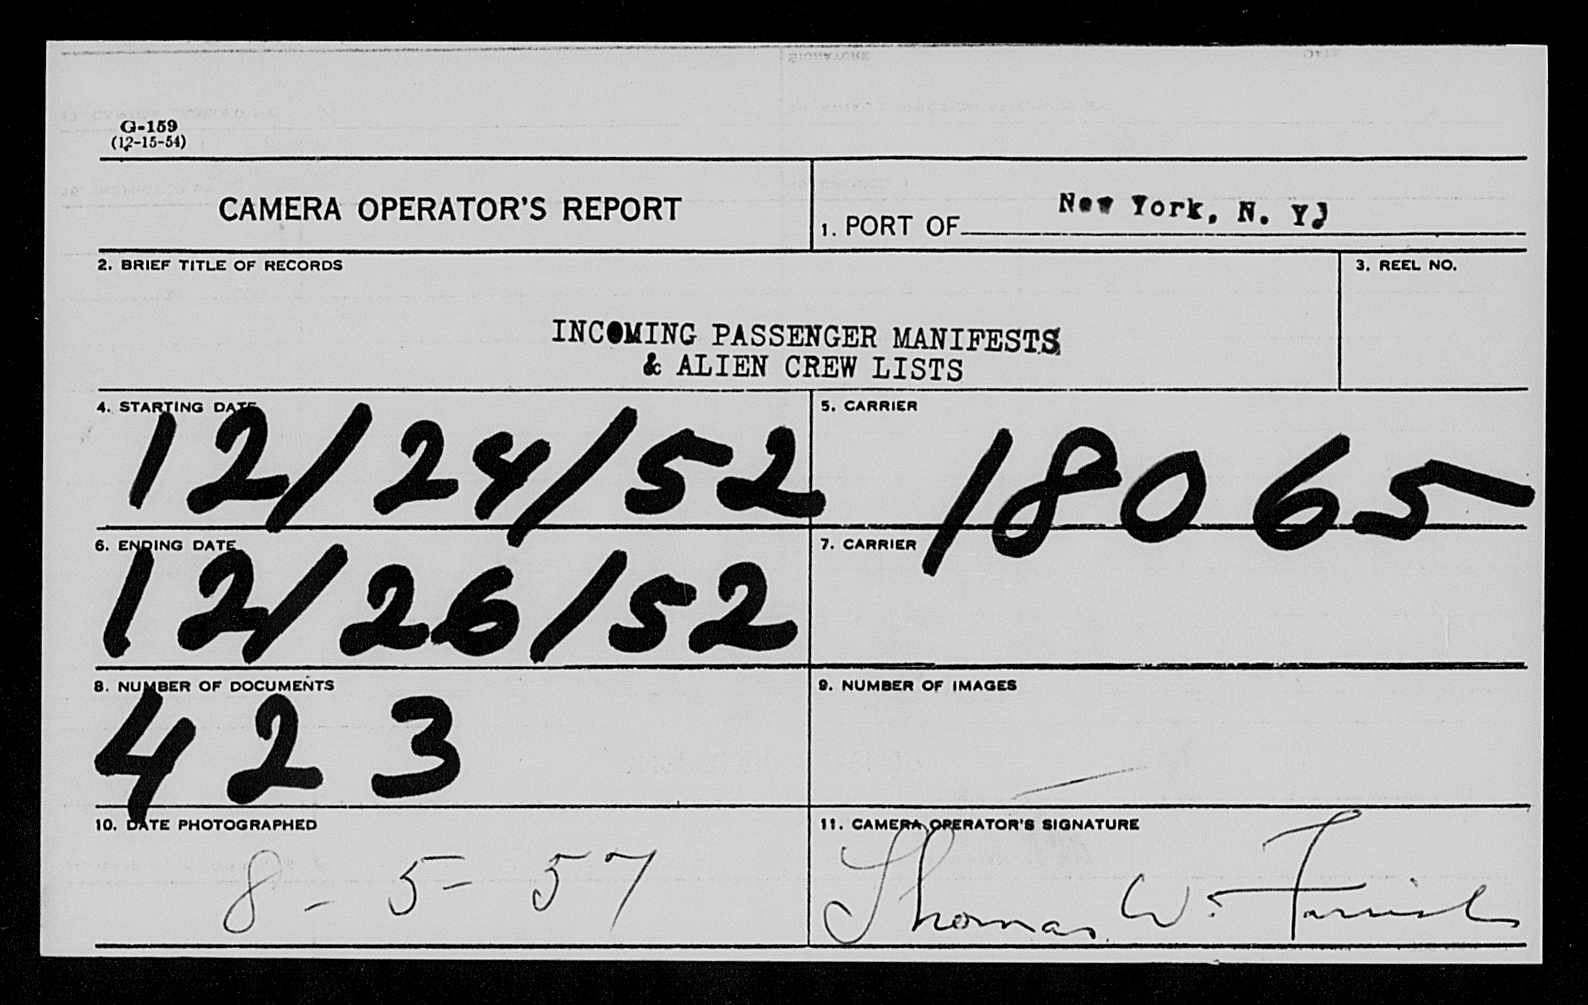 G-159
(12-15-54)
CAMERA OPERATOR'S REPORT
1. PORT OF New York, N. Y.
2. BRIEF TITLE OF RECORDS
3. REEL NO.
INCOMING PASSENGER MANIFESTS
& ALIEN CREW LISTS
4. STARTING DATE
12/24/52
5. CARRIER
18065
6. ENDING DATE
12/26/52
7. CARRIER
8. NUMBER OF DOCUMENTS
423
9. NUMBER OF IMAGES
10. DATE PHOTOGRAPHED
8-5-57
11. CAMERA OPERATOR'S SIGNATURE
Thomas W.